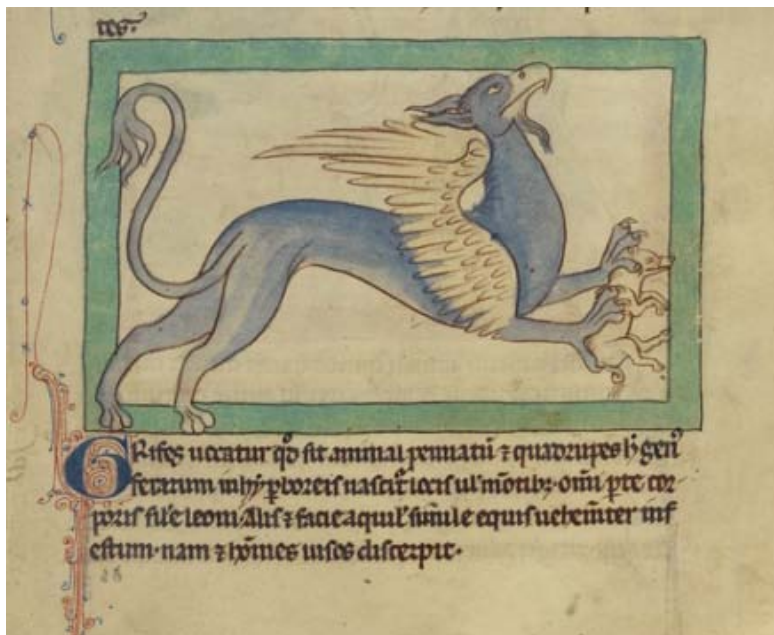 tes.
GRifes uocatur qđ sit animal pennatū ⁊ quadrupes h̵ genꝰ
ferarum in hyꝑboreis nascit᷑ locis ul᷑ mōtibꝫ. omī ꝑte cor
poris sil̵e leoni. Alis ⁊ facie aquil᷑ simile equis uehem̄ter inf
estum. nam ⁊ hōines uisos discerpit.